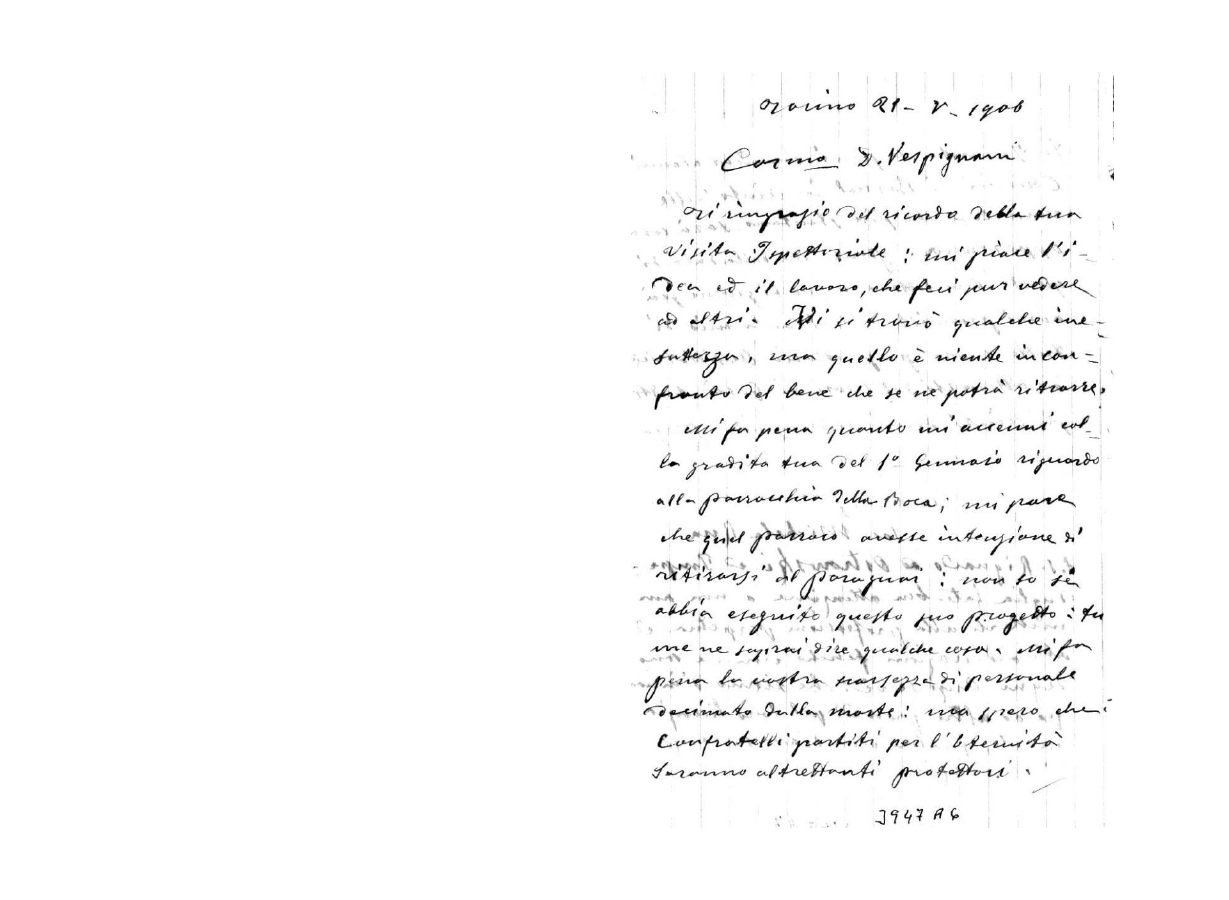 Torino 21 - V - 1906
Carmo D. Vespignani
Ti ringrazio del ricordo della tua
Visita Ispettoriale : mi piace l'i-
dea ed il lavoro, che feci pur vedere
ad altri. Vi si trovò qualche ine-
sattezza, ma quello è niente in con-
fronto del bene che se ne potrà ritrarre.
Mi fa pena quanto mi accenni col-
la gradita tua del 1º Gennaio riguardo
alla parrocchia della Boca; mi pare
che quel parroco avesse intenzione di
ritirarsi al Paraguai : non so se
abbia eseguito questo suo progetto : tu
me ne saprai dire qualche cosa. Mi fa
pena la vostra scarsezza di personale
decimato dalla morte : ma spero che i
Confratelli partiti per l'Eternità
saranno altrettanti protettori.
3947 A 6